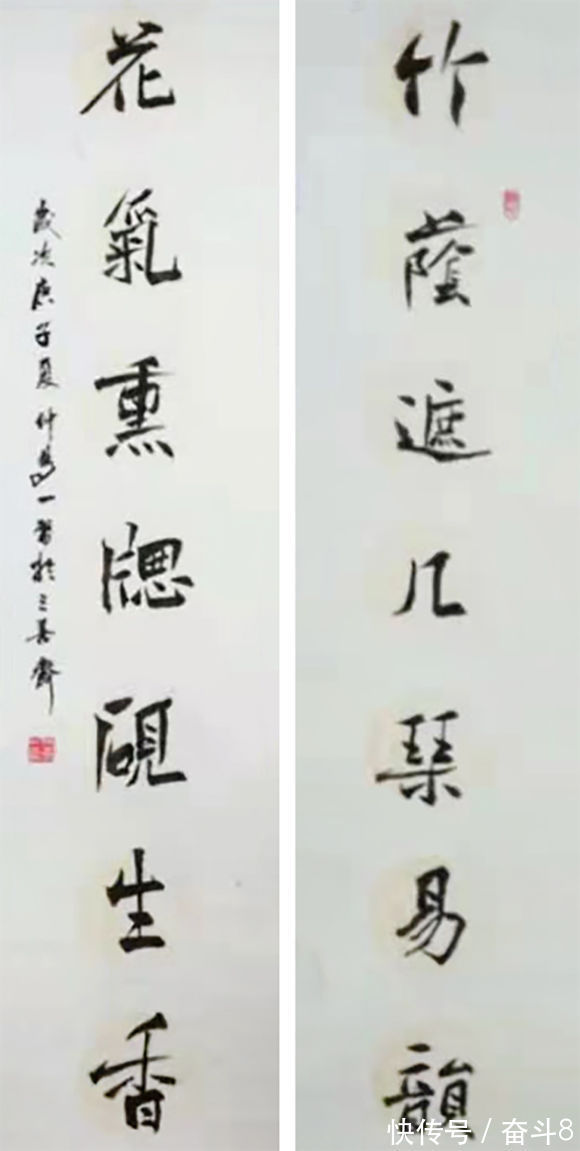 竹蔭遮几琴易韻
花氣熏牕硯生香
歲次庚子夏一於三齋
快传号 / 奋斗8